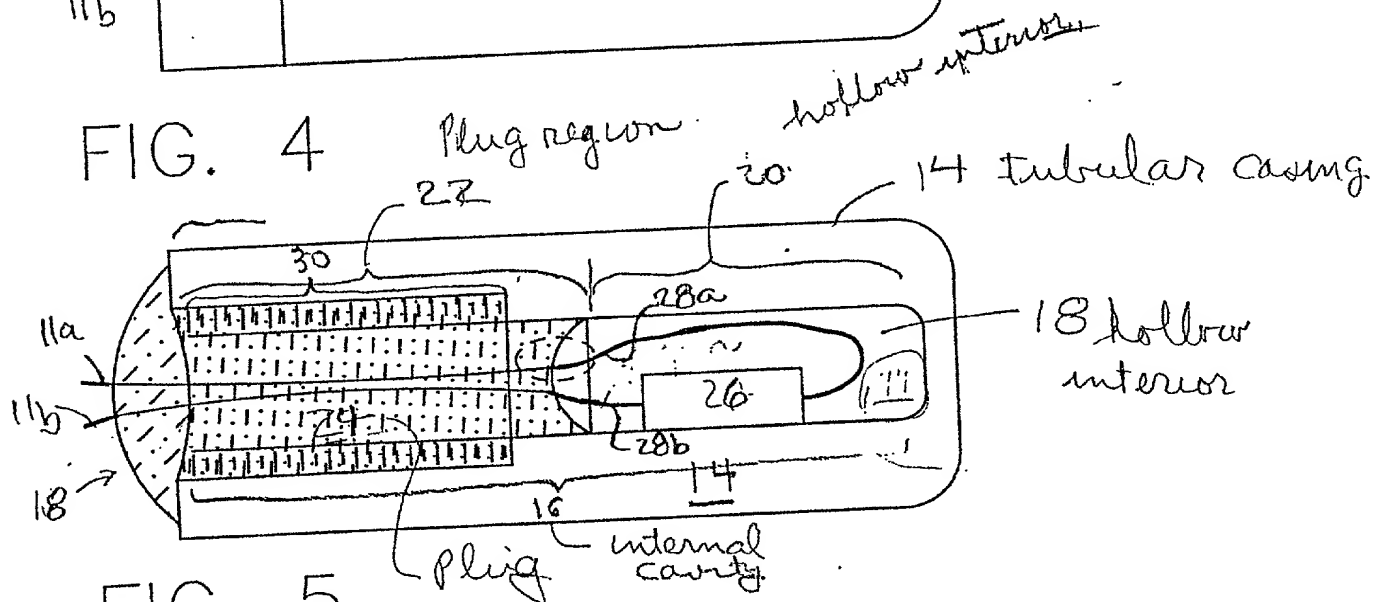 11b
hollow interior
FIG. 4
Plug region
20
14 tubular casing
22
30
28a
11a
18 hollow
interior
26
11b
24
28b
18
14
16
internal
cavity
Plug
FIG. 5